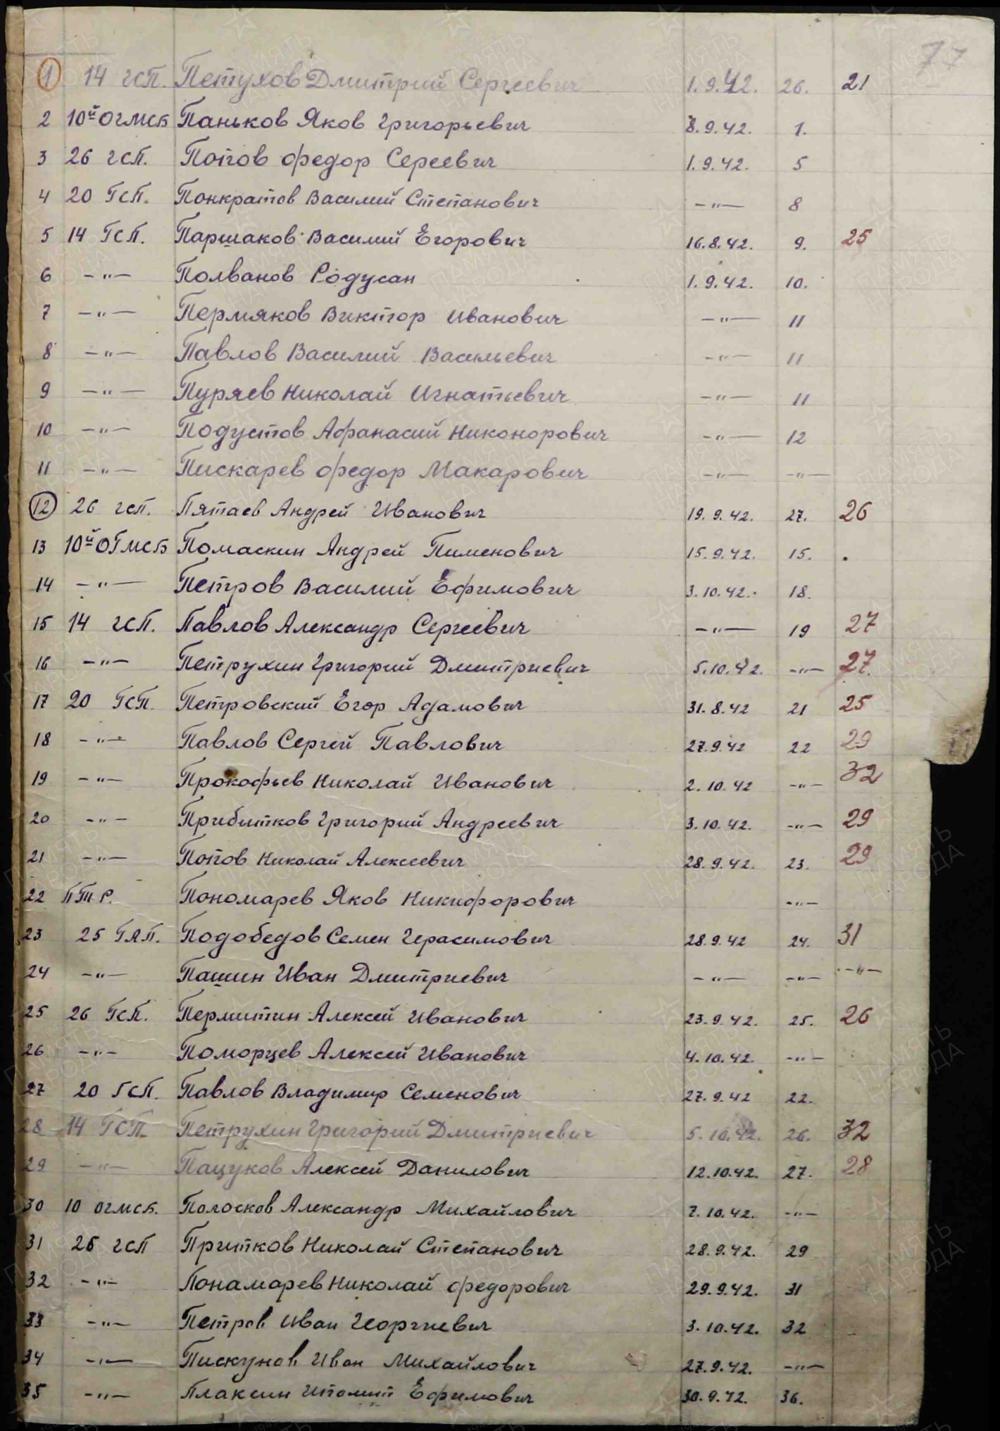 77
1 14 гсп. Петухов Дмитрий Сергеевич 1.9.42. 26. 21
2 10й ОГМСБ Паньков Яков Григорьевич 8.9.42. 1.
3 26 гсп. Попов Федор Сереевич 1.9.42. 5
4 20 Гсп. Понкратов Василий Степанович —"— 8
5 14 Гсп. Паршаков Василий Егорович 16.8.42. 9. 25
6 —"— Полванов Родусан 1.9.42. 10.
7 —"— Пермяков Виктор Иванович —"— 11
8 —"— Павлов Василий Васильевич —"— 11
9 —"— Пуряев Николай Игнатьевич —"— 11
10 —"— Подустов Афанасий Никонорович —"— 12
11 —"— Пискарев Федор Макарович —"— —"—
12 26 гсп. Пятаев Андрей Иванович 19.9.42. 27. 26
13 10й ОГМСБ Помаскин Андрей Пименович 15.9.42. 15.
14 —"— Петров Василий Ефимович 3.10.42. 18.
15 14 гсп. Павлов Александр Сергеевич —"— 19 27
16 —"— Петрухин Григорий Дмитриевич 5.10.42. —"— 27
17 20 Гсп. Петровский Егор Адамович 31.8.42 21 25
18 —"— Павлов Сергей Павлович 27.9.42 22 29
19 —"— Прокофьев Николай Иванович 2.10.42 —"— 32
20 —"— Прибытков Григорий Андреевич 3.10.42. —"— 29
21 —"— Попов Николай Алексеевич 28.9.42. 23. 29
22 ПТР. Пономарев Яков Никифорович —"—
23 25 ГАП. Подобедов Семен Герасимович 28.9.42 24. 31
24 —"— Пашин Иван Дмитриевич —"— —"— —"—
25 26 Гсп. Пермитин Алексей Иванович 23.9.42. 25. 26
26 —"— Поморцев Алексей Иванович 4.10.42. —"—
27 20 Гсп. Павлов Владимир Семенович 27.9.42 22.
28 14 Гсп. Петрухин Григорий Дмитриевич 5.10.42. 26. 32
29 —"— Пацуков Алексей Данилович 12.10.42. 27. 28
30 10 огмсб. Полосков Александр Михайлович 7.10.42. —"—
31 26 гсп Притков Николай Степанович 28.9.42. 29
32 —"— Понамарев Николай Федорович 29.9.42. 31
33 —"— Петров Иван Георгиевич 3.10.42. 32
34 —"— Пискунов Иван Михайлович 27.9.42. —"—
35 —"— Плаксин Ипомит Ефимович 30.9.42. 36.